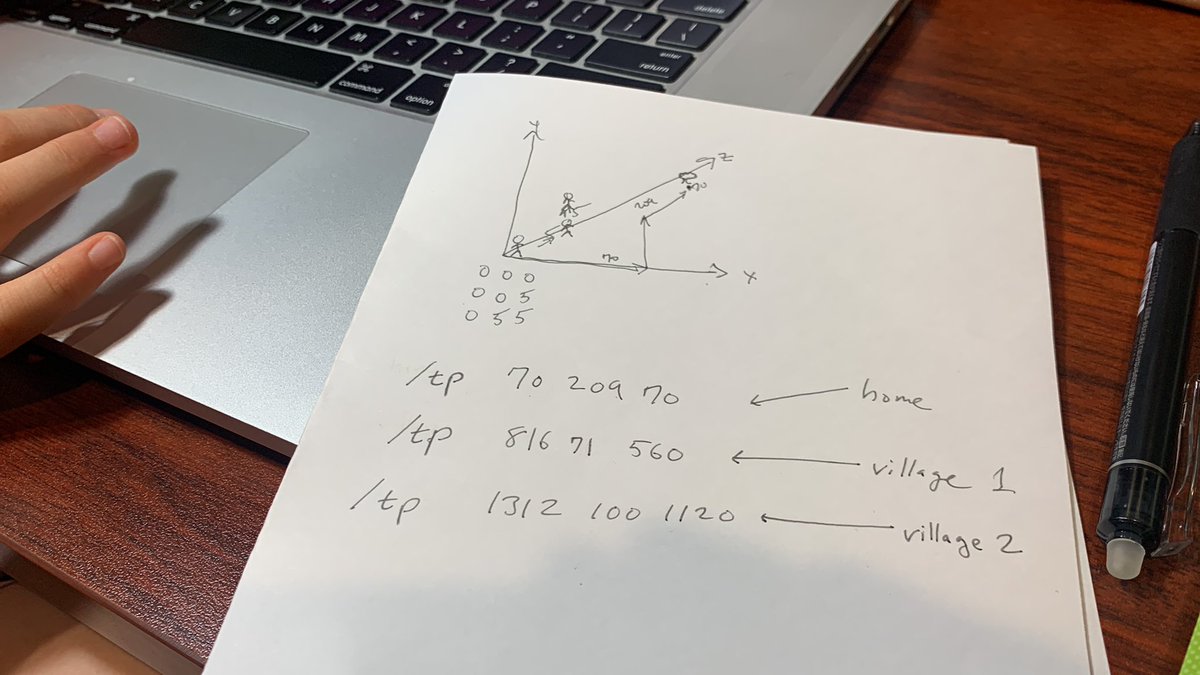 delete
Z X C V B N M < > ? enter return
command command option
Y
Z
70
70
X
0 0 0
0 0 5
0 5 5
/tp 70 209 70 home
/tp 816 71 560 village 1
/tp 1312 100 1120 village 2